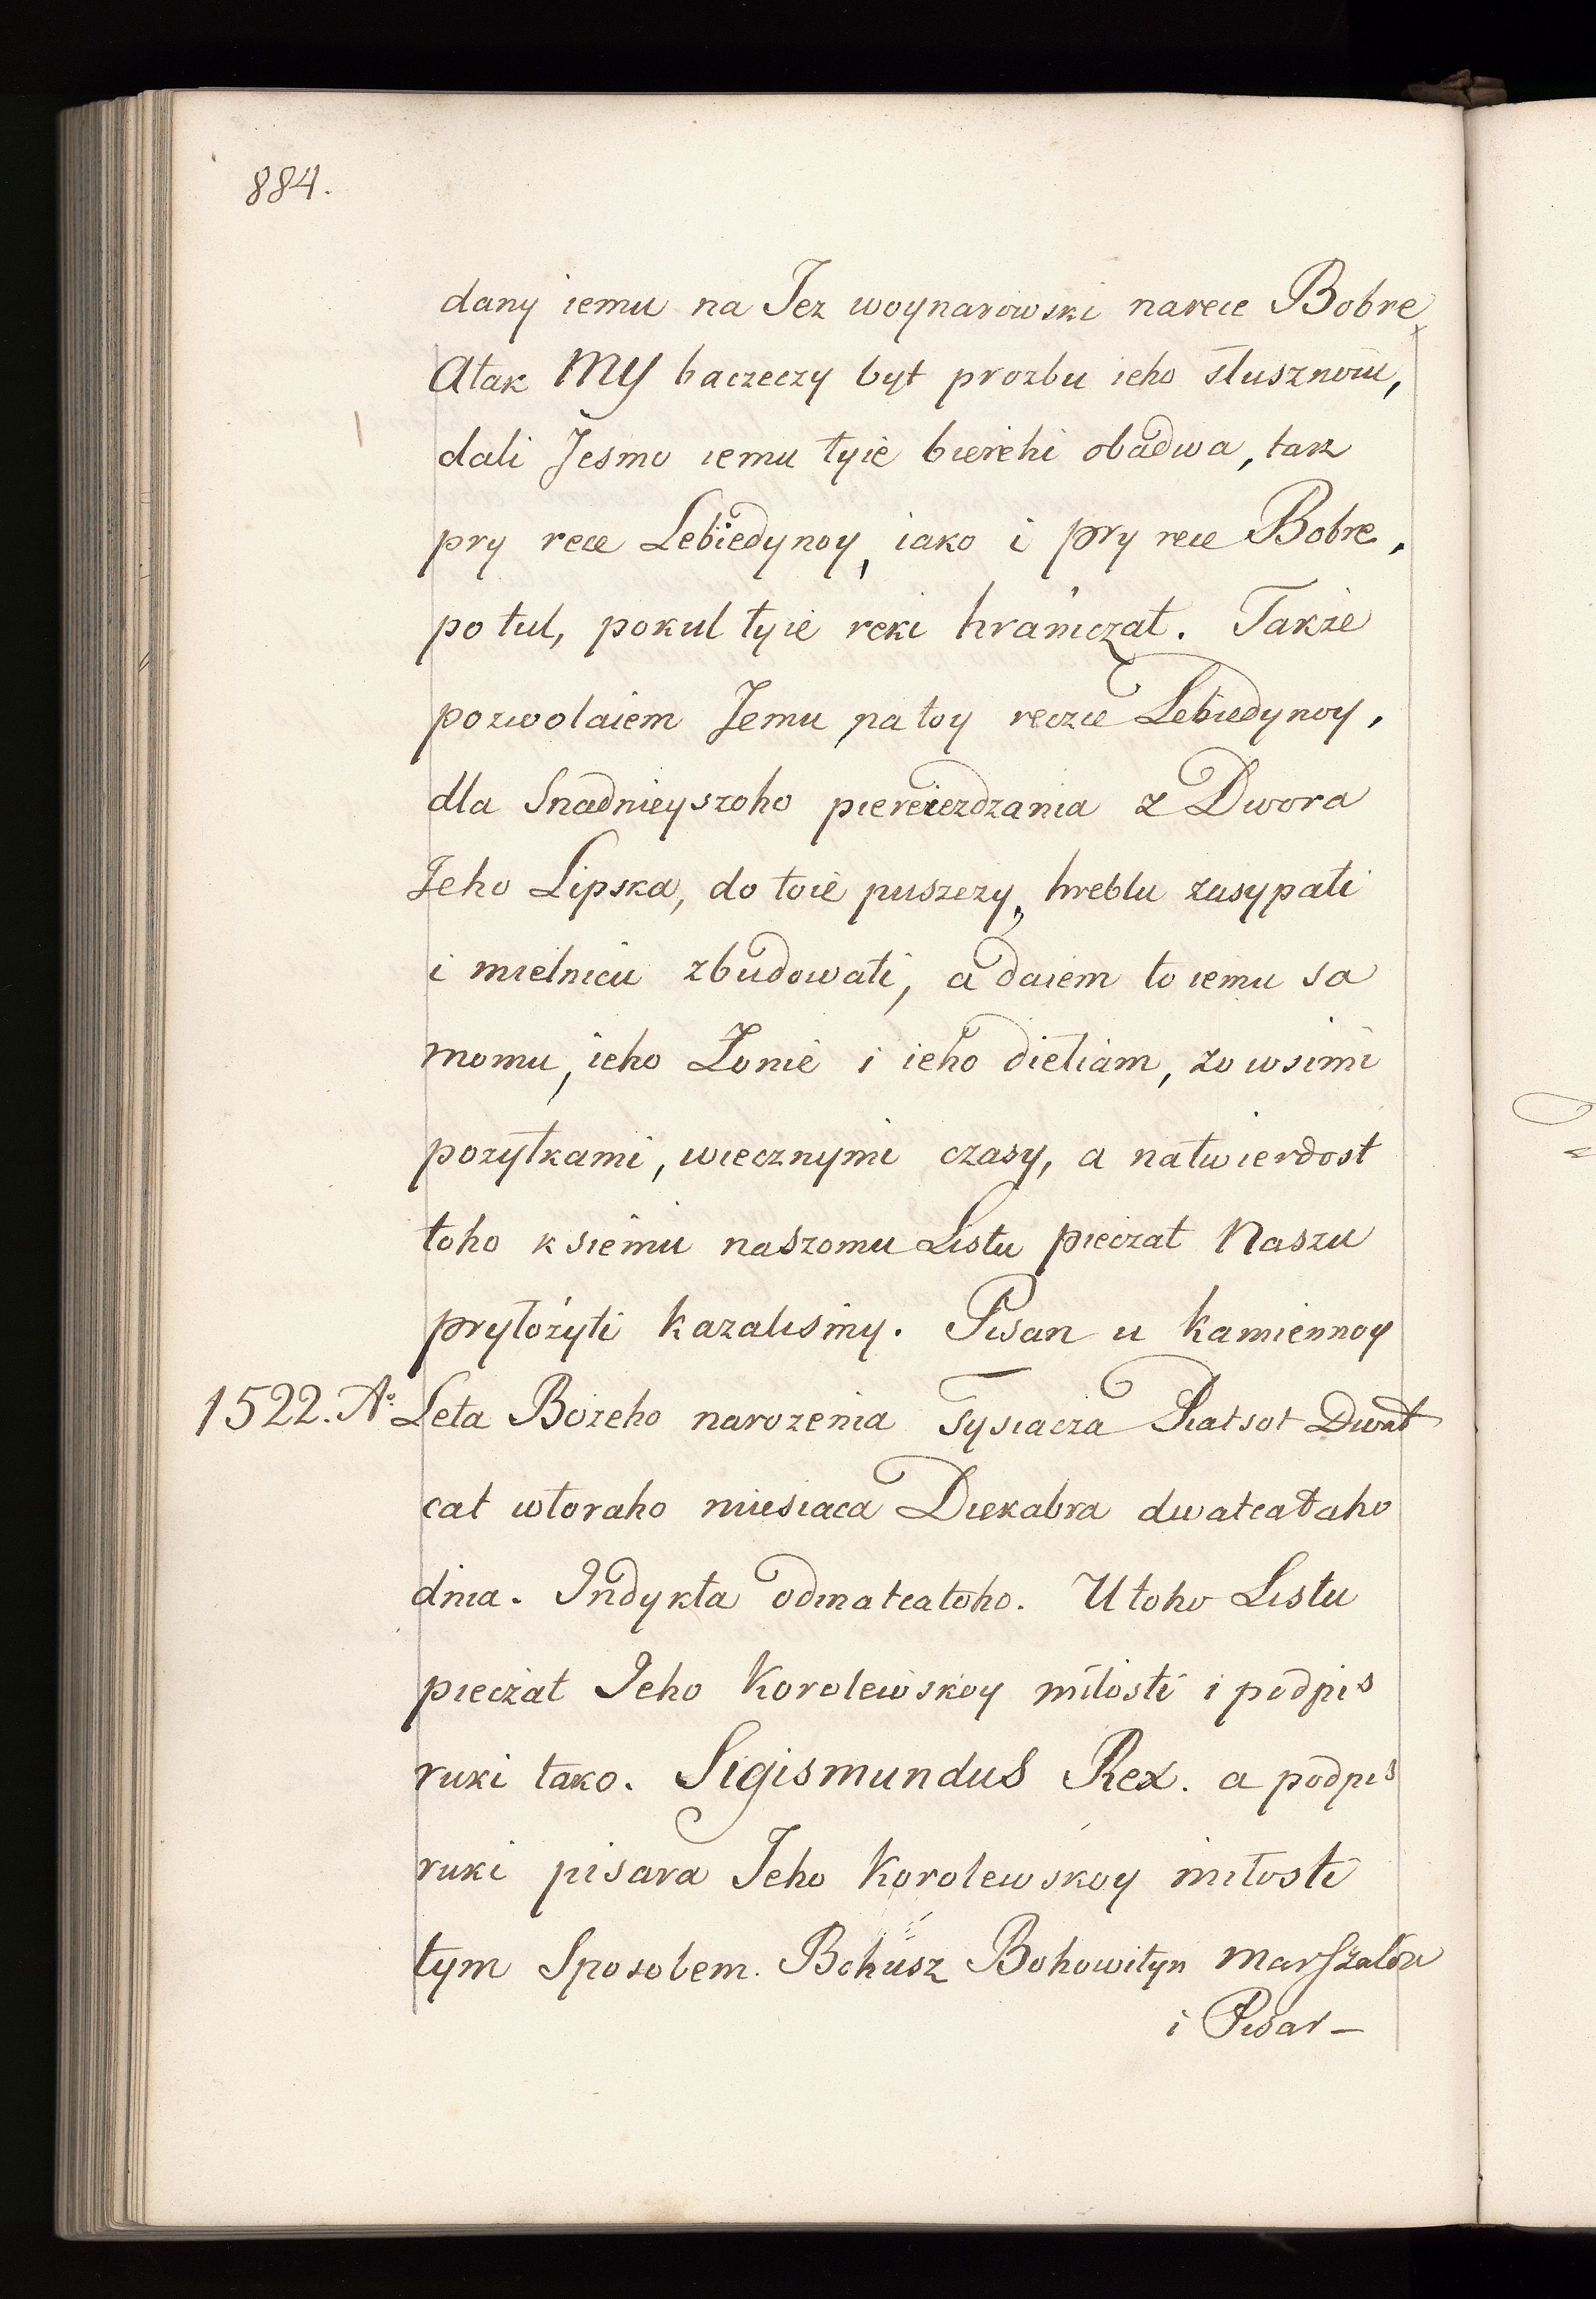 884.
dany iemu na Jez woynarowski narece Bobre,
Atak MY baczeczy byt prozbu ieho słusznoiu,
dali Jesmo iemu tyie bierehi obadwa, tak
pry rece Lebiedynoy, iako i pry rece Bobre,
potul, pokul tyie reki hraniczat. Także
pozwolaiem Jemu na toy reczie Lebiedynoy,
dla Snadnieyszoho piereiezdzania z Dwora
Jeho Lipska, do toie puszczy, hreblu zasypati
i mielnicu zbudowati, a daiem to iemu sa
momu, ieho Żonie i ieho dietiam, zo wsimi
pozytkami, wiecznymi czasy, a natwierdost
toho k siemu naszomu Listu pieczat Naszu
pryłożyti kazalismy. Pisan u Kamiennoy
1522. Aº Leta Bożeho narozenia Tysiacza Piatsot Dwat
cat wtoraho miesiaca Diekabra dwatcataho
dnia. Indykta odinatcatoho. U toho Listu
pieczat Jeho Korolewskoy miłosti i podpis
ruki tako. Sigismundus Rex. a podpis
ruki pisara Jeho Korolewskoy miłosti
tym Sposobem. Bohusz Bohowityn Marszałok
i Pisar –